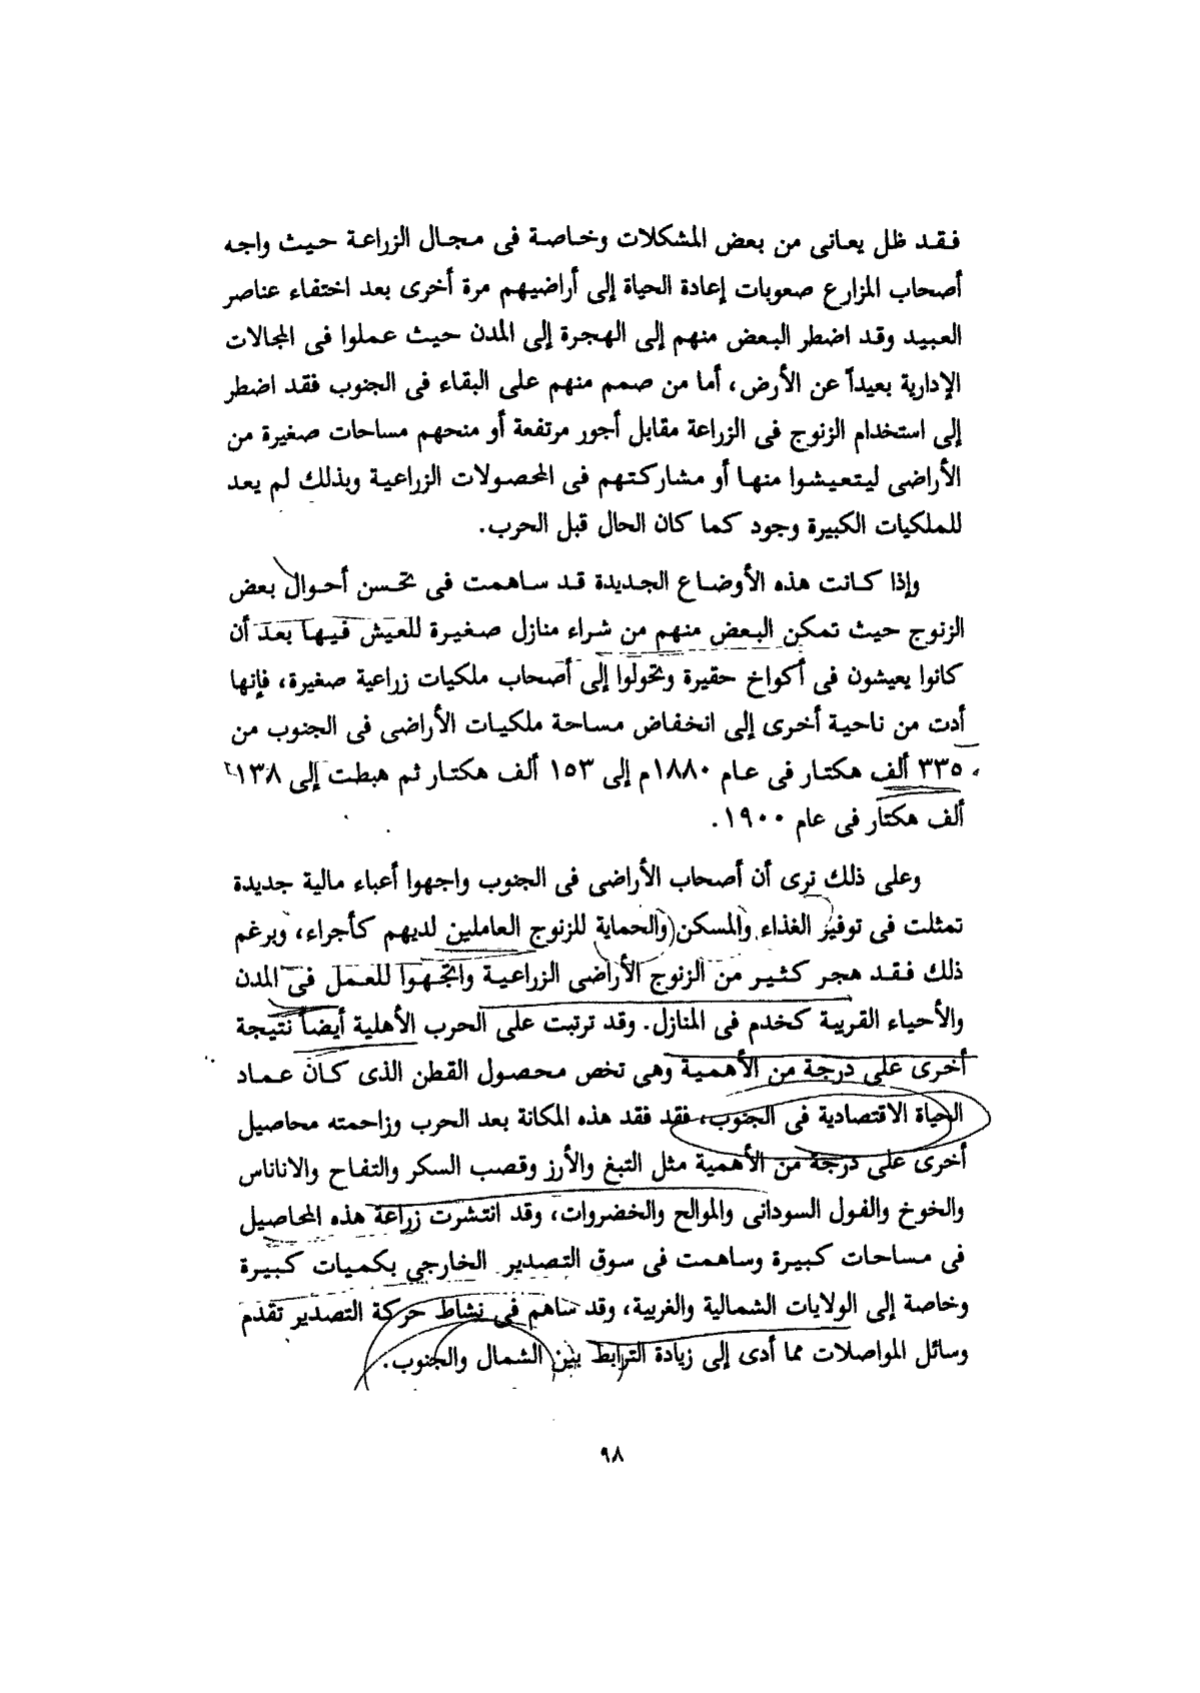 فقد ظل يعانى من بعض المشكلات وخاصة فى مجال الزراعة حيث واجه
أصحاب المزارع صعوبات إعادة الحياة إلى أراضيهم مرة أخرى بعد اختفاء عناصر
العبيد وقد اضطر البعض منهم إلى الهجرة إلى المدن حيث عملوا فى المجالات
الإدارية بعيداً عن الأرض، أما من صمم منهم على البقاء فى الجنوب فقد اضطر
إلى استخدام الزنوج فى الزراعة مقابل أجور مرتفعة أو منحهم مساحات صغيرة من
الأراضى ليتعيشوا منها أو مشاركتهم فى المحصولات الزراعية وبذلك لم يعد
للملكيات الكبيرة وجود كما كان الحال قبل الحرب.
وإذا كانت هذه الأوضاع الجديدة قد ساهمت فى تحسن أحوال بعض
الزنوج حيث تمكن البعض منهم من شراء منازل صغيرة للعيش فيها بعد أن
كانوا يعيشون فى أكواخ حقيرة وتحولوا إلى أصحاب ملكيات زراعية صغيرة، فإنها
أدت من ناحية أخرى إلى انخفاض مساحة ملكيات الأراضى فى الجنوب من
٣٣٥ ألف هكتار فى عام ١٨٨٠م إلى ١٥٣ ألف هكتار ثم هبطت إلى ١٣٨
ألف هكتار فى عام ١٩٠٠.
وعلى ذلك نرى أن أصحاب الأراضى فى الجنوب واجهوا أعباء مالية جديدة
تمثلت فى توفير الغذاء والمسكن والحماية للزنوج العاملين لديهم كأجراء، وبرغم
ذلك فقد هجر كثير من الزنوج الأراضى الزراعية واتجهوا للعمل فى المدن
والأحياء القريبة كخدم فى المنازل. وقد ترتبت على الحرب الأهلية أيضاً نتيجة
أخرى على درجة من الأهمية وهى تخص محصول القطن الذى كان عماد
الحياة الاقتصادية فى الجنوب، فقد فقد هذه المكانة بعد الحرب وزاحمته محاصيل
أخرى على درجة من الأهمية مثل التبغ والأرز وقصب السكر والتفاح والاناناس
والخوخ والفول السودانى والموالح والخضروات، وقد انتشرت زراعة هذه المحاصيل
فى مساحات كبيرة وساهمت فى سوق التصدير الخارجي بكميات كبيرة
وخاصة إلى الولايات الشمالية والغربية، وقد ساهم فى نشاط حركة التصدير تقدم
وسائل المواصلات مما أدى إلى زيادة الترابط بين الشمال والجنوب.
٩٨